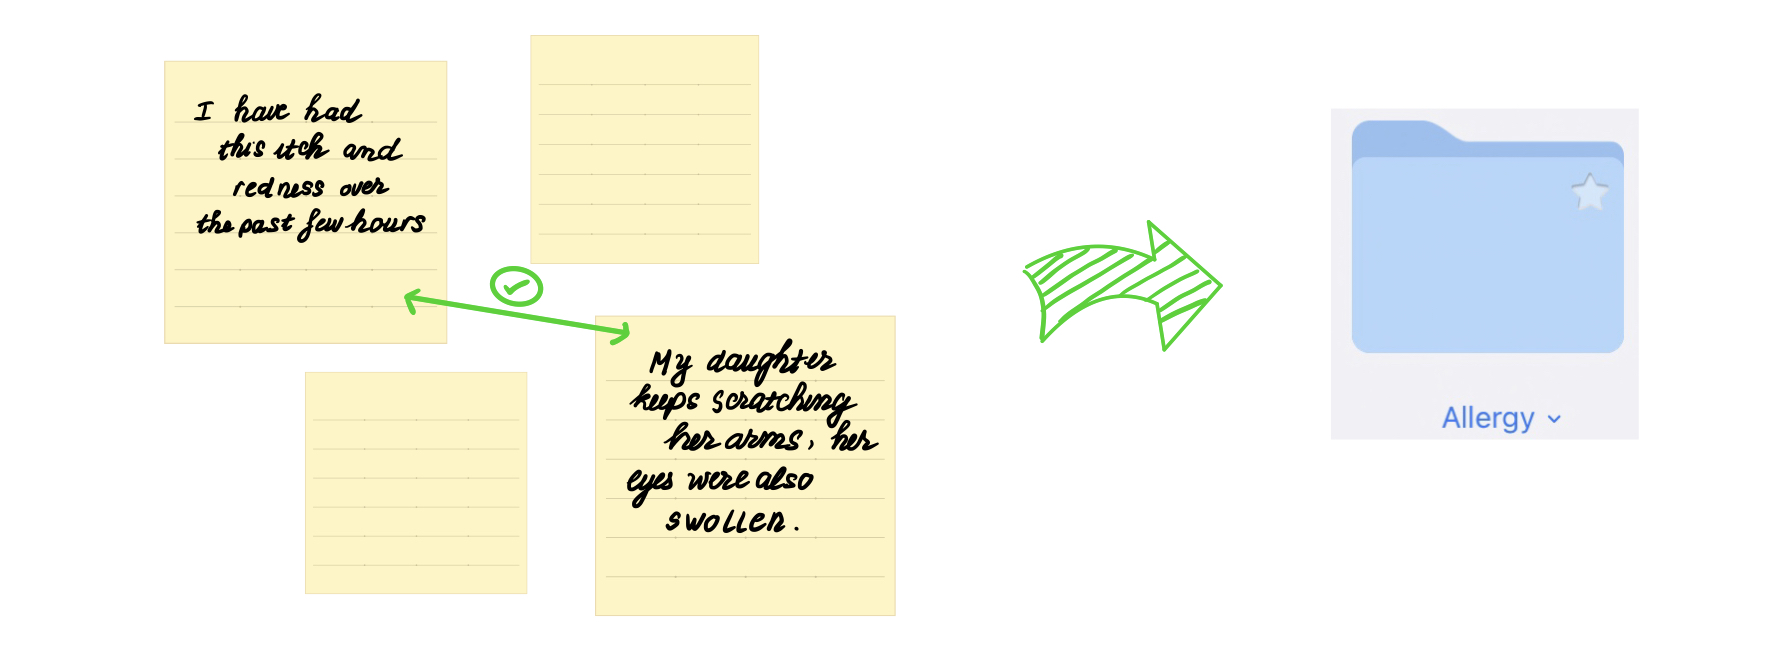 I have had
this itch and
redness over
the past few hours
My daughter
keeps scratching
her arms, her
eyes were also
swollen.
Allergy